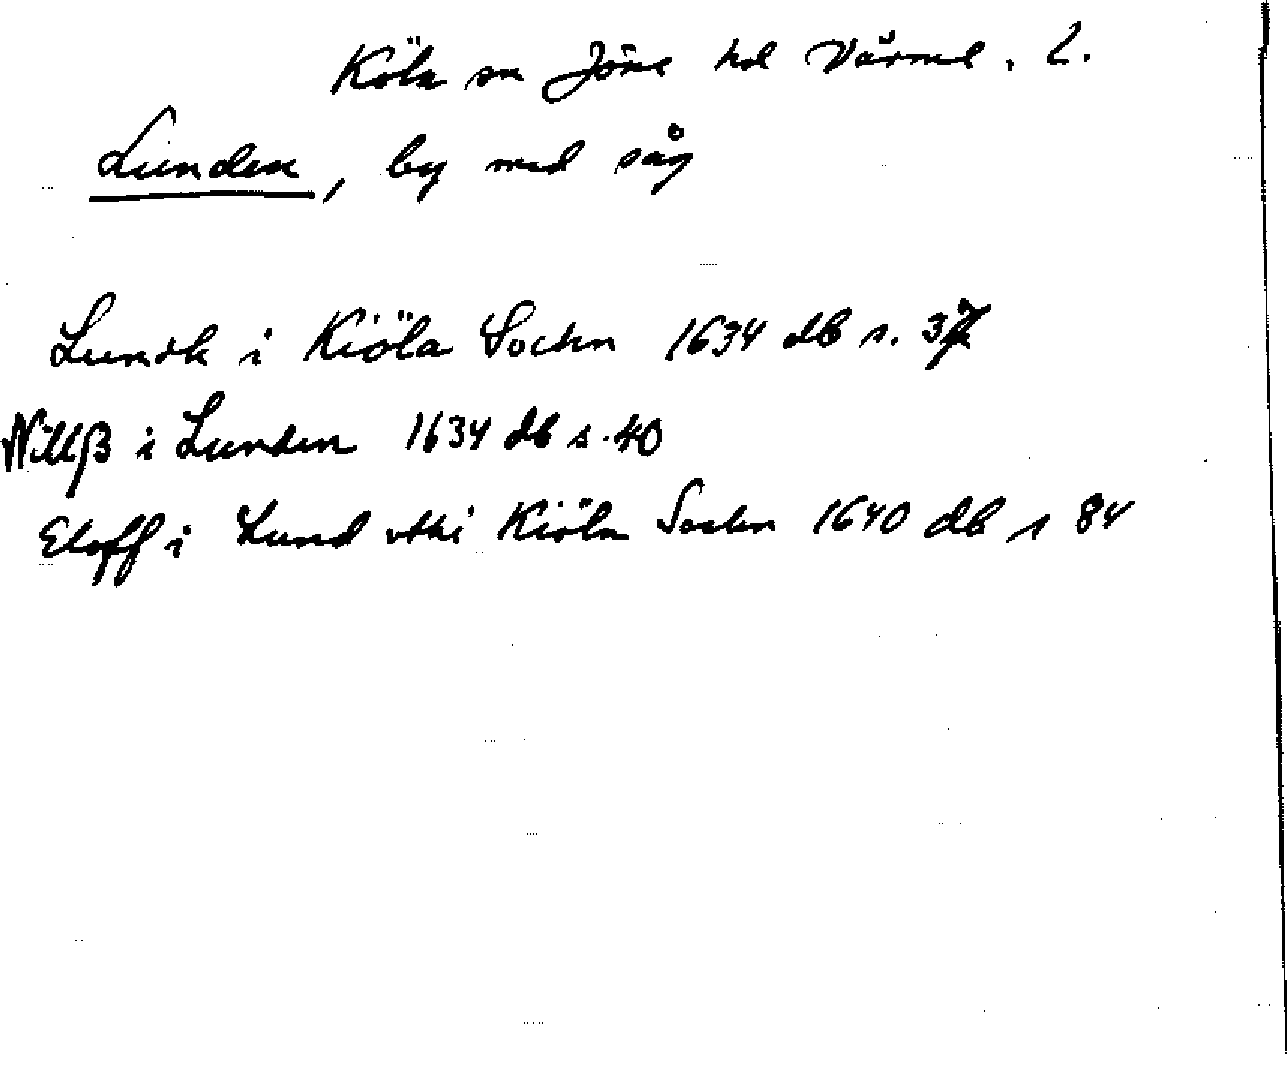 Köla sn Jösse hd Värml. L.
Lunden, by med såg
Lundh i Kiöla Sochn 1634 db s. 37
Nillß i Lunden 1634 db s. 40
Eloff i Lund uthi Kiöla Sochn 1640 db s 84